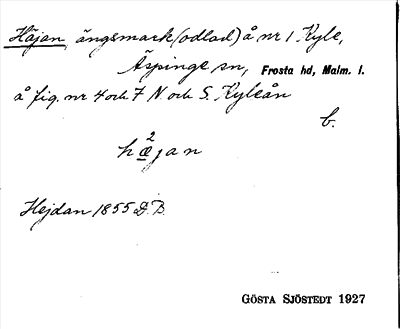 Häjan, ängsmark (odlad) å nr 1 Kyle,
Äspinge sn, Frosta hd, Malm. l.
å fig. nr 4 och 7 N. och S. Kyleån
b.
2
hæjan
Hejdan 1855 D. B.
GÖSTA SJÖSTEDT 1927